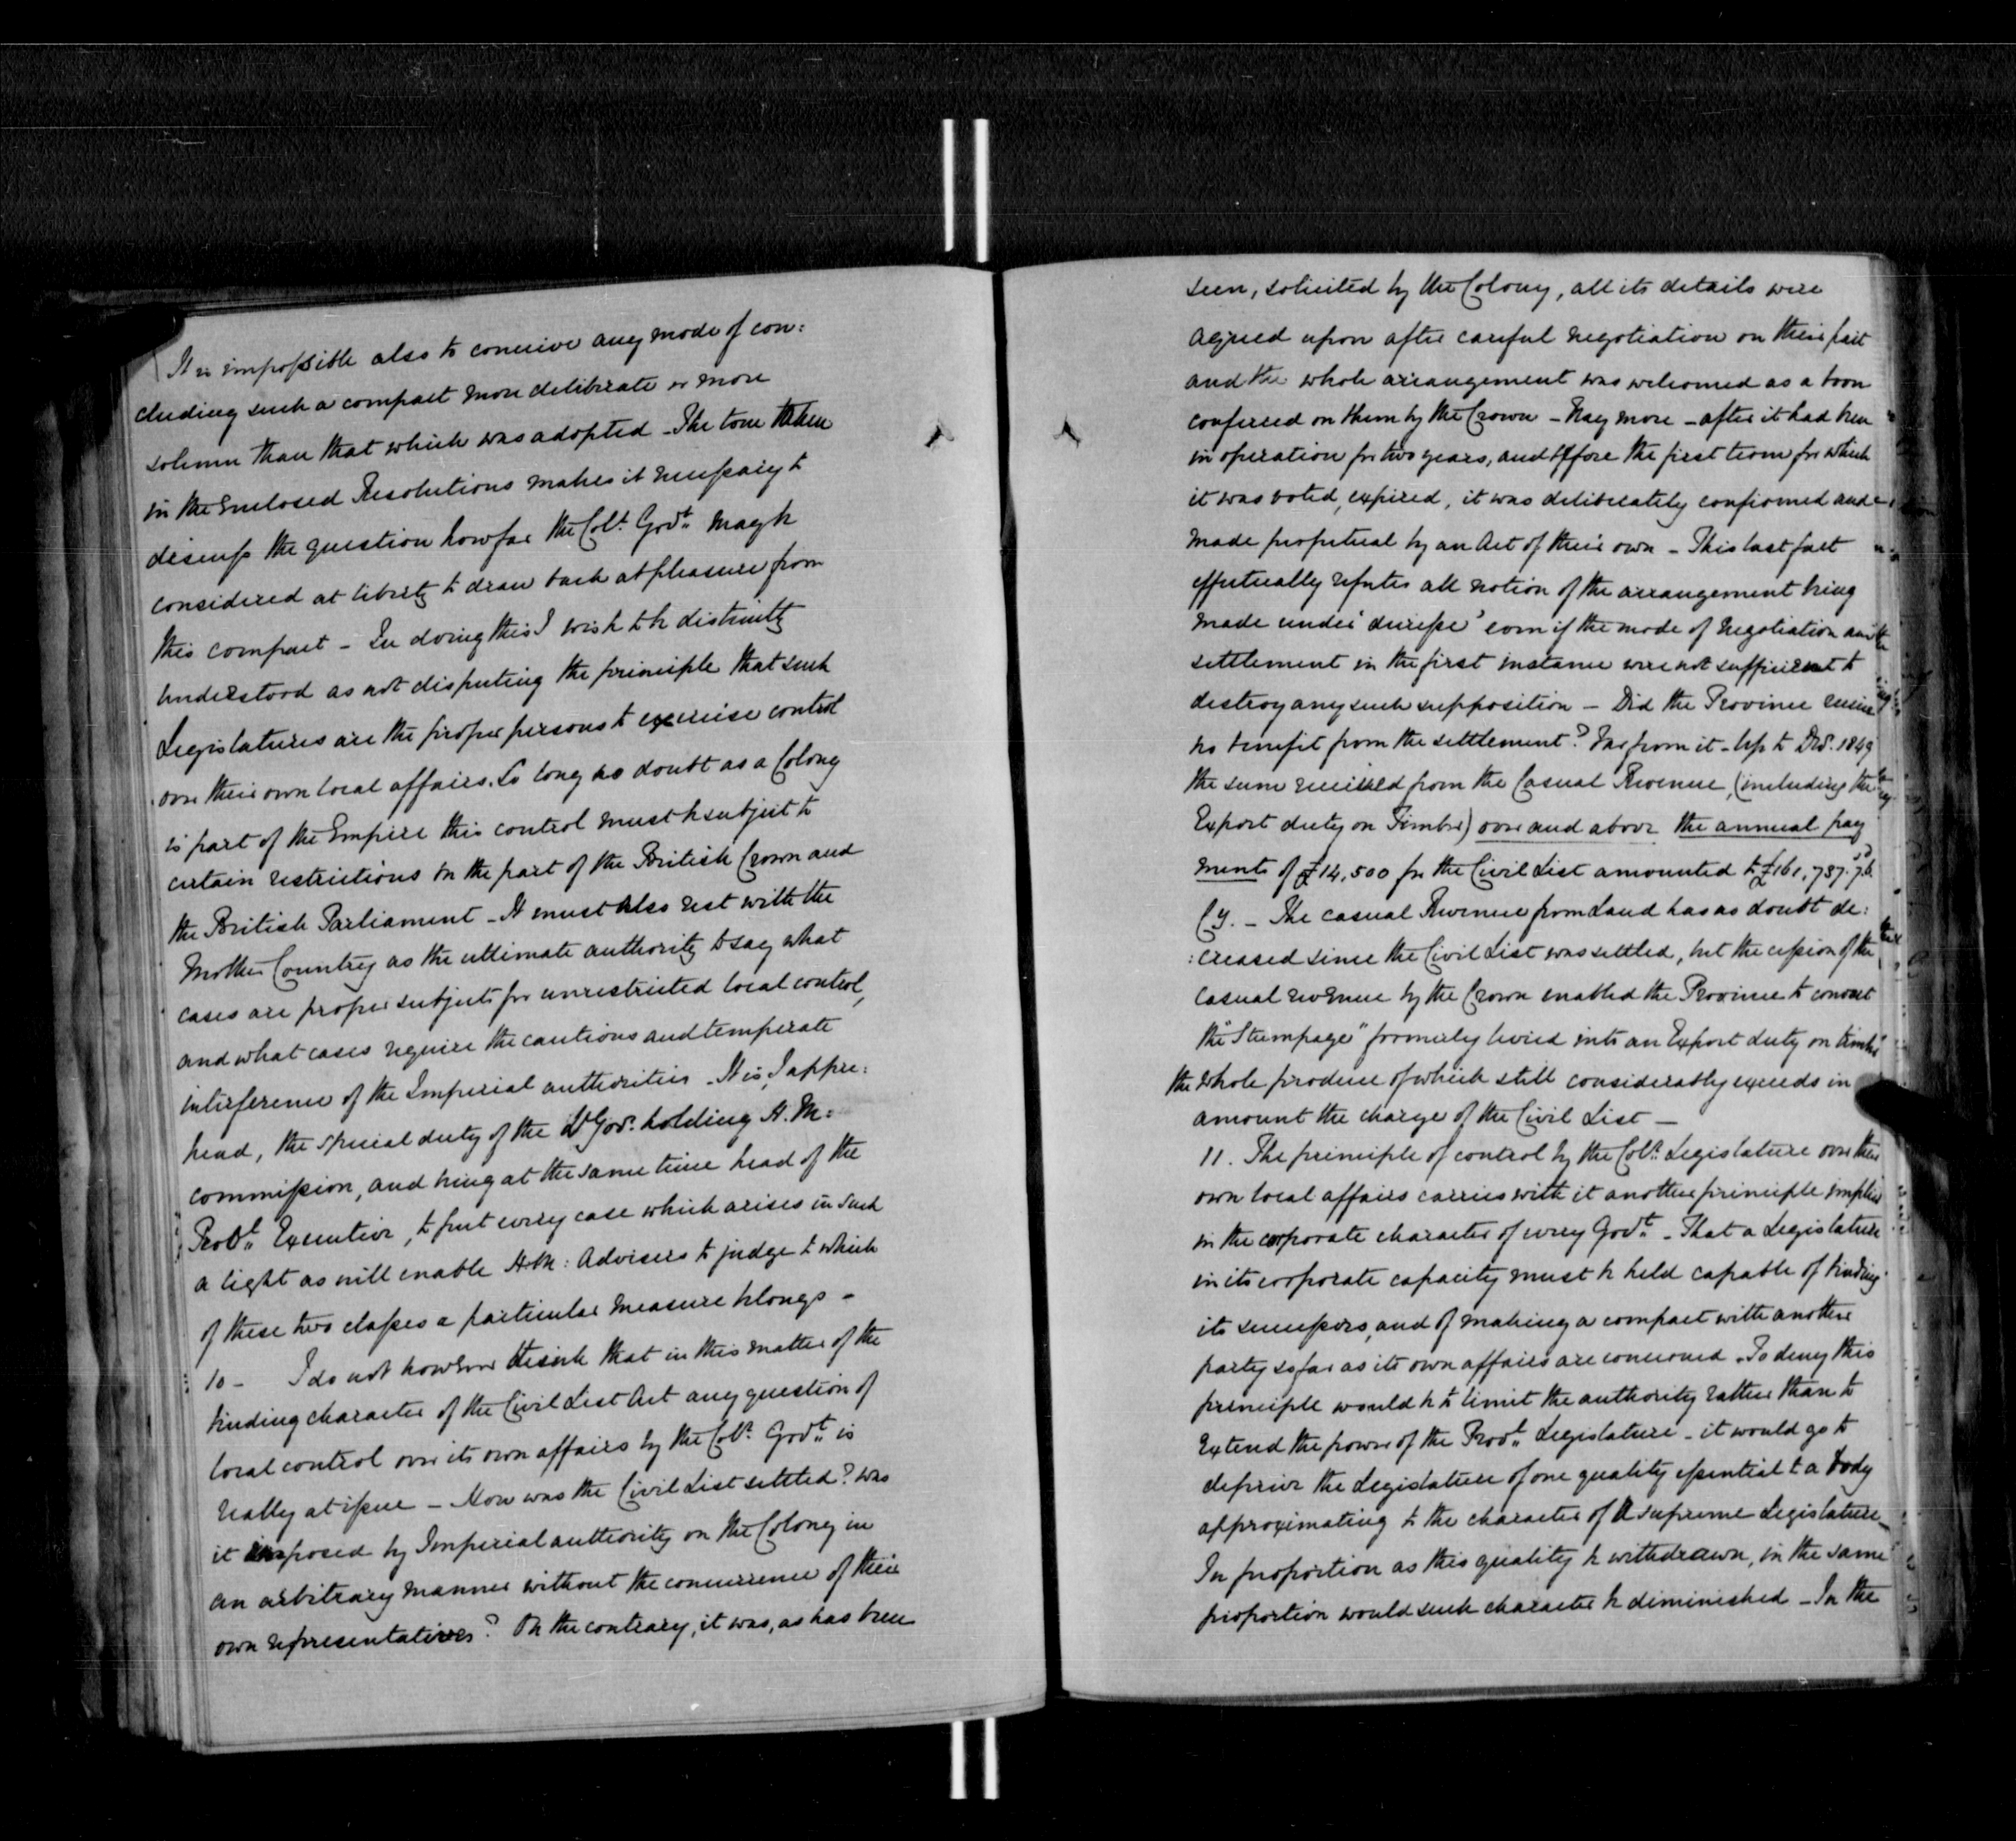 It is impossible also to conceive any mode of con:
cluding such a compact more deliberate or more
solemn than that which was adopted - The tone taken
in the enclosed Resolutions makes it necessary to
discuss the question how far the Col.l Gov.t may be
considered at liberty to draw back at pleasure from
this compact - In doing this I wish to be distinctly
understood as not disputing the principle that such
Legislatures are the proper persons to exercise control
over their own local affairs. So long no doubt as a Colony
is part of the Empire this control must be subject to
certain restrictions on the part of the British Crown and
the British Parliament - It must also rest with the
Mother Country as the ultimate authority to say what
cases are proper subjects for unrestricted local control,
and what cases require the cautious and temperate
interference of the Imperial authorities - It is, I appre:
hend, the special duty of the Lt Gov.r holding H. M:
commission, and being at the same time head of the
Prov.l Executive, to put every case which arises in such
a light as will enable H.M: Advisers to judge to which
of these two classes a particular measure belongs -
10 - I do not however think that in this matter of the
binding character of the Civil List Act any question of
local control over its own affairs by the Col.l Gov.t is
really at issue - How was the Civil List settled? was
it imposed by Imperial authority on the Colony in
an arbitrary manner without the concurrence of their
own representatives? On the contrary, it was, as has been
seen, solicited by the Colony, all its details were
agreed upon after careful negotiation on their part
and the whole arrangement was welcomed as a boon
conferred on them by the Crown - Nay more - after it had been
in operation for two years, and before the first term for which
it was voted, expired, it was deliberately confirmed and
made perpetual by an Act of their own - This last fact
effectually refutes all notion of the arrangement being
made under 'duresse' even if the mode of negotiation and
settlement in the first instance were not sufficient to
destroy any such supposition - Did the Province receive
no benefit from the settlement? Far from it - Up to Dec.r 1849
the sum received from the Casual Revenue, (including the
Export duty on Timber) over and above the annual pay
ments of £14,500 for the Civil List amounted to £161,737.
Cy. - The casual Revenue from Land has no doubt de:
:creased since the Civil List was settled, but the cession of the
casual revenue by the Crown enabled the Province to convert
the "Stumpage" formerly levied into an Export duty on timber
the whole produce of which still considerably exceeds in
amount the charge of the Civil List -
11. The principle of control by the Col.l Legislature over their
own local affairs carries with it another principle implied
in the corporate character of every Gov.t - That a Legislature
in its corporate capacity must be held capable of binding
its successors, and of making a compact with another
party so far as its own affairs are concerned. To deny this
principle would be to limit the authority rather than to
extend the power of the Prov.l Legislature - it would go to
deprive the Legislature of one quality essential to a body
approximating to the character of a supreme Legislature -
In proportion as this quality be withdrawn, in the same
proportion would such character be diminished - In the